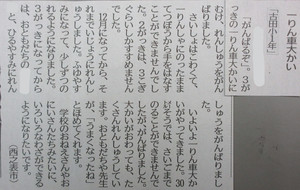 一りん車大かい
「古田小1年」
「がんばるぞ。」3が
っきの一りん車大かいに
むけ、れんしゅうをがん
ばりました。
さいしょはこわくて、
一りんしゃにのったまま
てつぼうから手をはなせ
た。2がっきは、3こぎ
ぐらいしかすすめません
でした。
12月になってから、そ
れまでいじょうにれんし
ゅうしました。ふゆやす
みになって、少しずつの
れるようになりました。
3がっきになってから
は、おともだちの
と、ひろやすみにれん
しゅうをがんばりまし
た。
いよいよ一りん車大か
いがやってきました。30
のることができませんでし
たが、がんばりました。
大かいがおわっても、た
くさんれんしゅうしてい
ます。おともだちや先生
が、「うまくなったね」
とほめてくれます。
学校のおねえさんやお
にいさんたちみたいに、
いろいろなわざができる
ようになりたいです。
（西之表市）